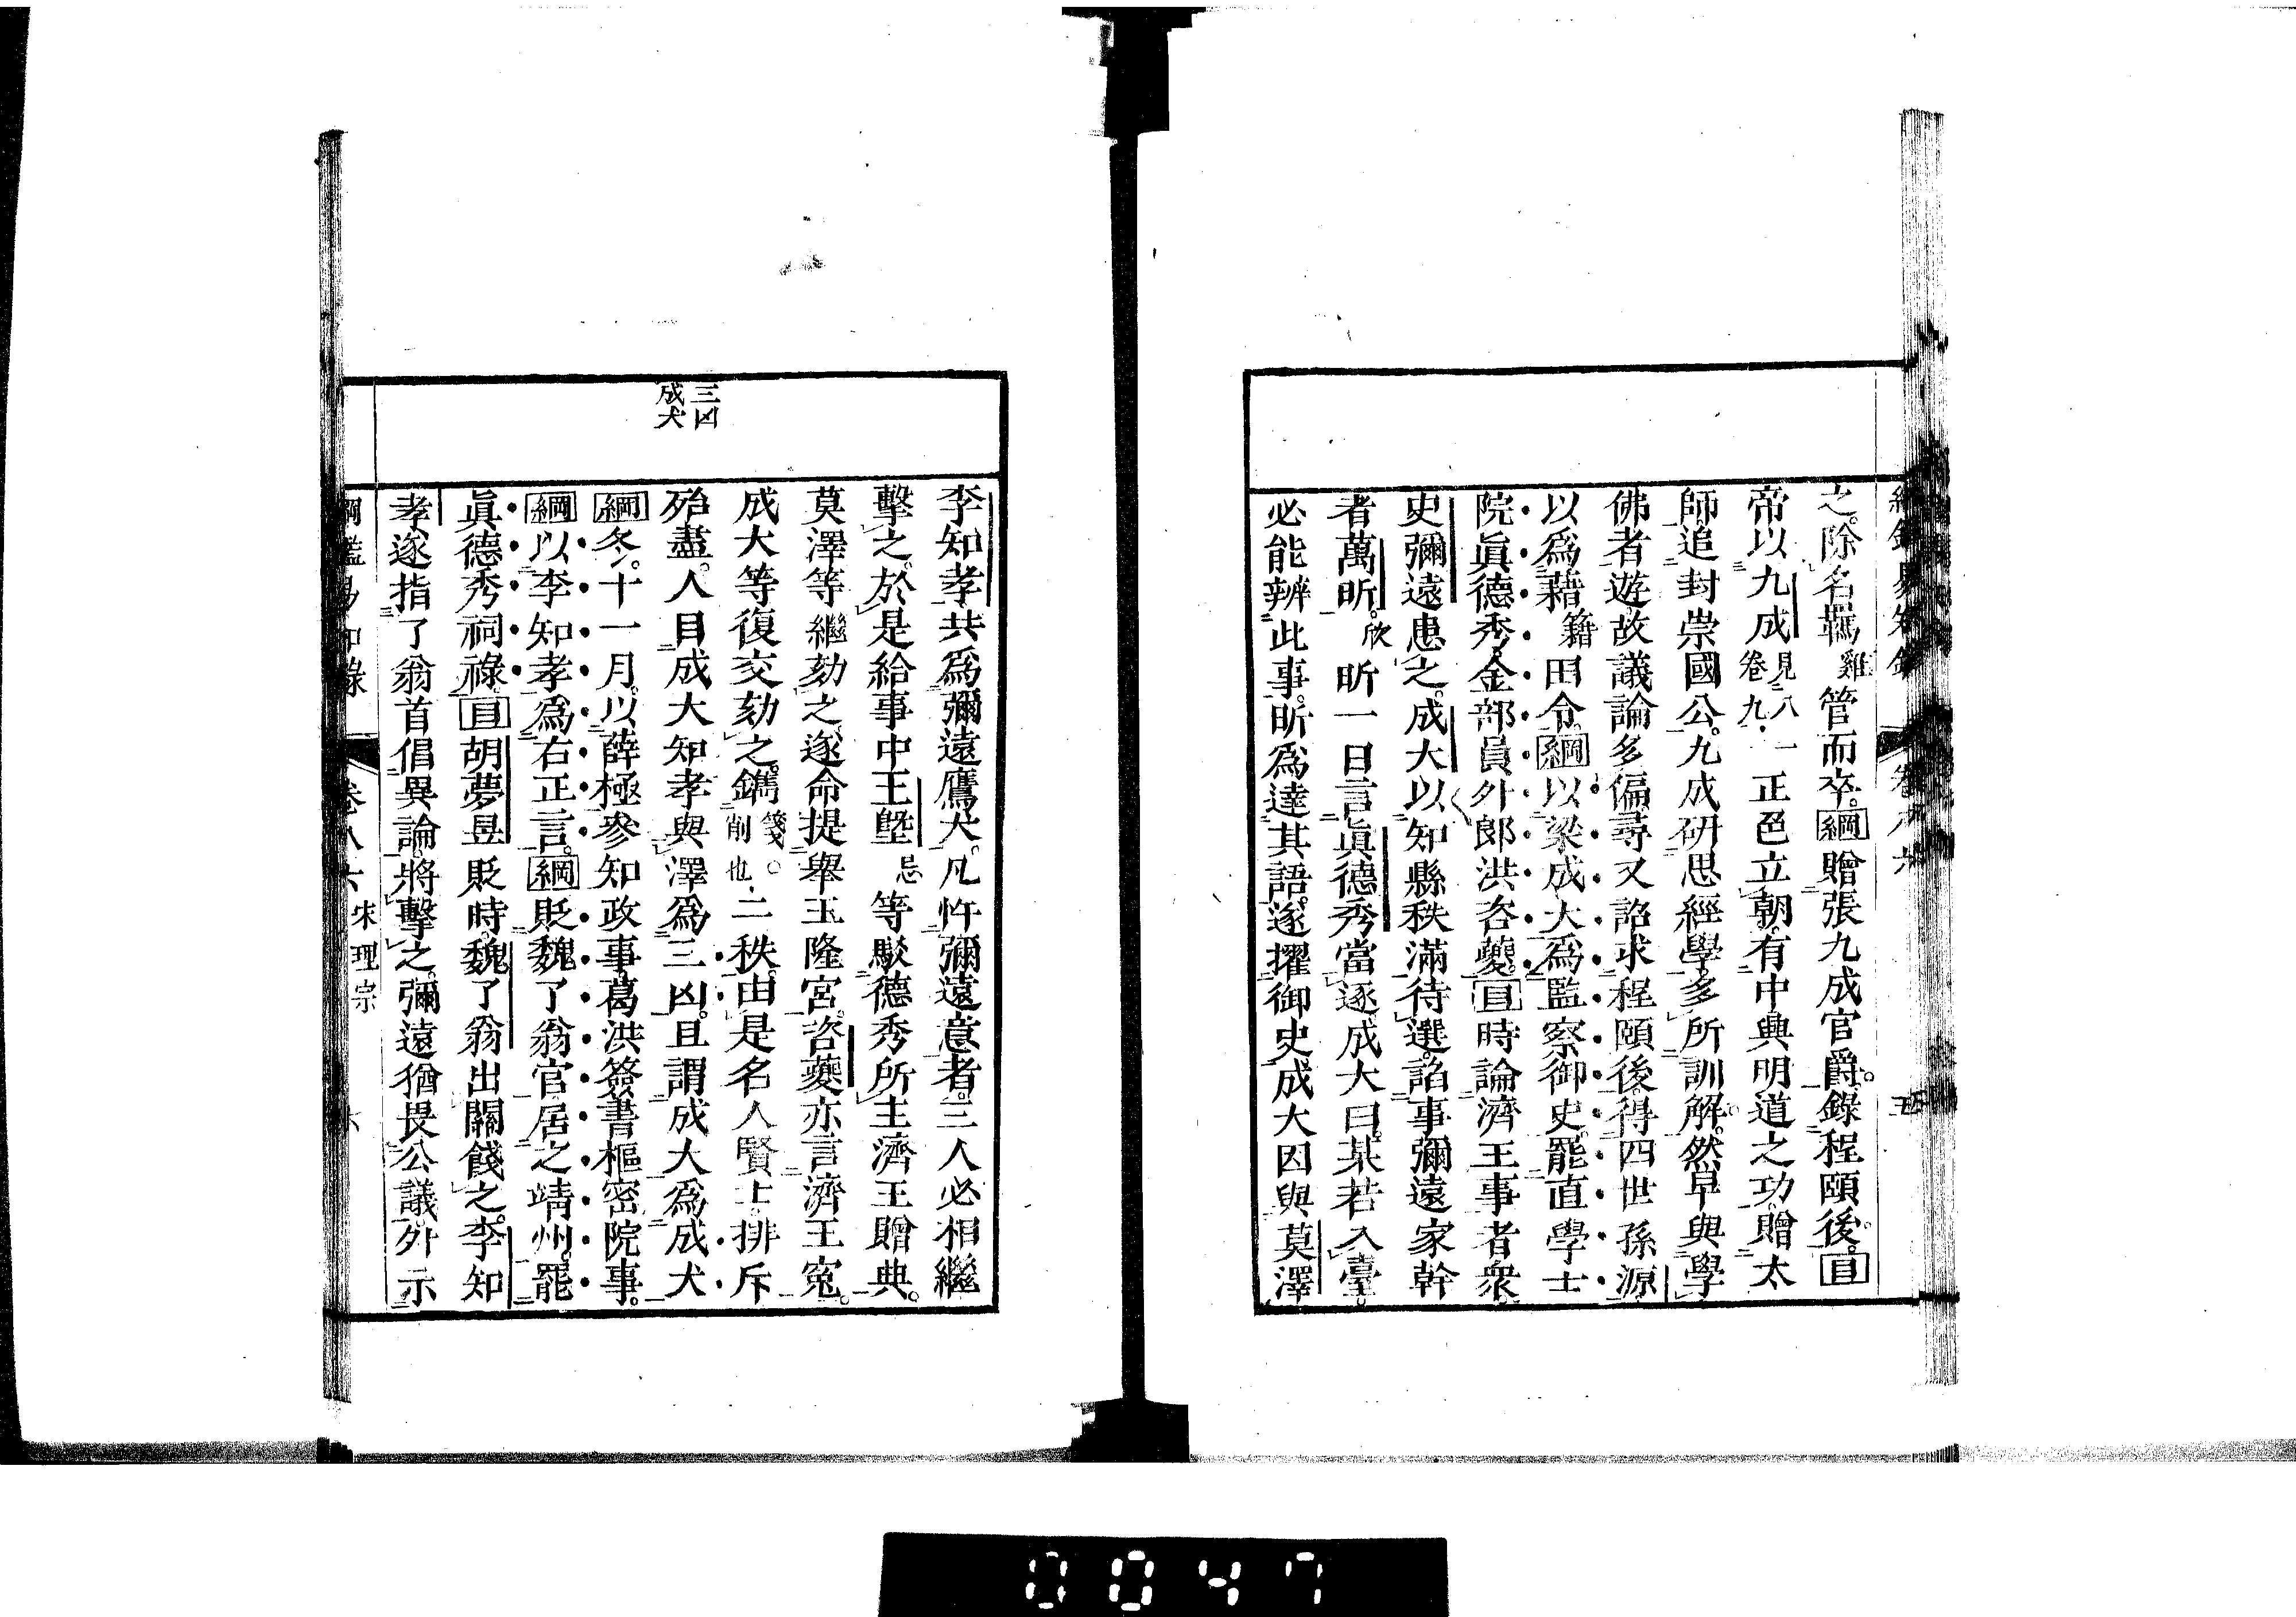 之。除名羈雞管而卒。綱贈張九成官爵。錄程頤後。目
帝以九成見八卷九一正色立朝。有中興明道之功。贈太
師追封崇國公。九成研思經學。多所訓解。然早與學
佛者遊。故議論多偏。尋又詔求程頤後。得四世孫源。
以爲藉籍田令。綱以梁成大爲監察御史。罷直學士
院眞德秀。金部員外郎洪咨夔。目時論濟王事者衆。
史彌遠患之。成大以知縣秩滿待選。諂事彌遠家幹
者萬昕。欣昕一日言眞德秀當逐。成大曰。某若入臺。
必能辨此事。昕爲達其語。遂擢御史。成大因與莫澤
李知孝共爲彌遠鷹犬。凡忤彌遠意者。三人必相繼
擊之。於是給事中王塈忌等駁德秀所主濟王贈典。
莫澤等繼劾之。遂命提舉玉隆宮。咨夔亦言濟王寃。
成大等復交劾之。鐫箋。削也二秩。由是名人賢士。排斥
殆盡。人目成大知孝與澤爲三凶。且謂成大爲成犬
綱冬。十一月。以薛極參知政事。葛洪簽書樞密院事。
綱以李知孝爲右正言。綱貶魏了翁官居之靖州。罷
眞德秀祠祿。目胡夢昱貶時。魏了翁出關餞之。李知
孝遂指了翁首倡異論。將擊之。彌遠猶畏公議。外示
三凶
成犬
綱鑑易知錄 卷八六 宋理宗
0047